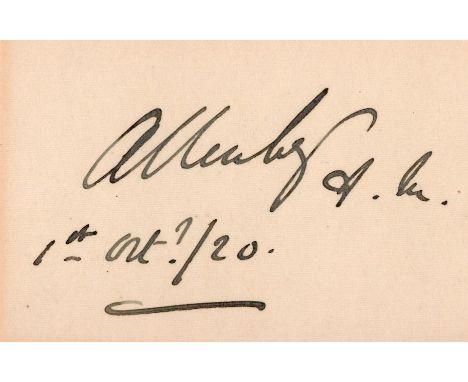 Allenby F.M.
1st Octr/20.